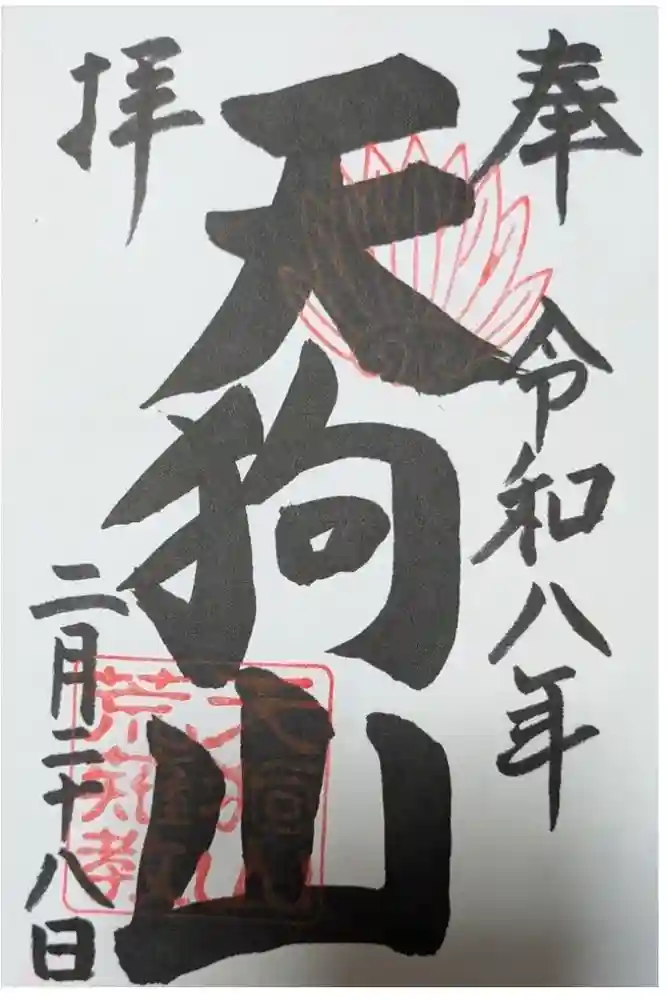 奉拝
令和八年
天狗山
二月二十八日